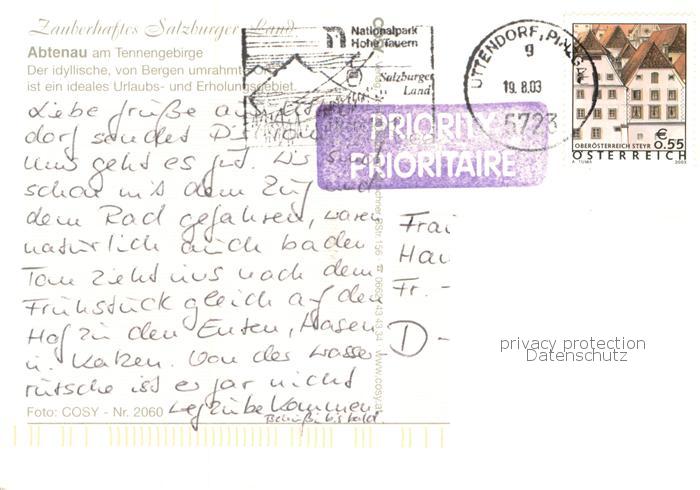 Zauberhaftes Salzburger Land
Abtenau am Tennengebirge
Der idyllische, von Bergen umrahmte
ist ein ideales Urlaubs- und Erholungsgebiet.
Nationalpark
Hohe Tauern
Salzburger
Land
UTTENDORF, PINZGAU
g
19.8.03
5723
€ 0.55
OBERÖSTERREICH STEYR
ÖSTERREICH
A. TUMA 2003
PRIORITY
PRIORITAIRE
Liebe Grüße aus
dorf sendet Dir
Uns geht es gut. Wir sind
schon mit dem Zug und
dem Rad gefahren, waren
natürlich auch baden
Tom zieht uns nach dem
Frühstück gleich auf den
Hof zu den Enten, Hasen
u. Katzen. Von der Wasser
rutsche ist er gar nicht
wegzubekommen.
bis bald.
Foto: COSY - Nr. 2060
Frau
Hau
Fr. -
D -
privacy protection
Datenschutz